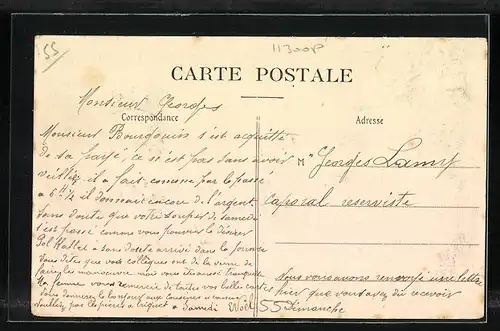 55
11300P
CARTE POSTALE
Monsieur Georges
Correspondance
Adresse
Monsieur Bourgouin s'est acquitté
de sa ce n'est pas sans avoir
veillé il a fait comme par le passé
a 6 H ½ il donnait encore de l'argent
sans doute que votre souper de samedi
s'est passé comme vous pouviez le désirer
Pol a sans doute arrivé dans la journée
Vous dites que vos collègues ont de la veine de
faire les manœuvre mais vous tranquille
Ma femme vous remercie de toutes vos belles cartes
donnerez le bonjour aux
a Samedi
M Georges Lamy
Caporal reserviste
Nous vous avons renvoyé une lettre
hier que vous avez du recevoir
55 Dimanche